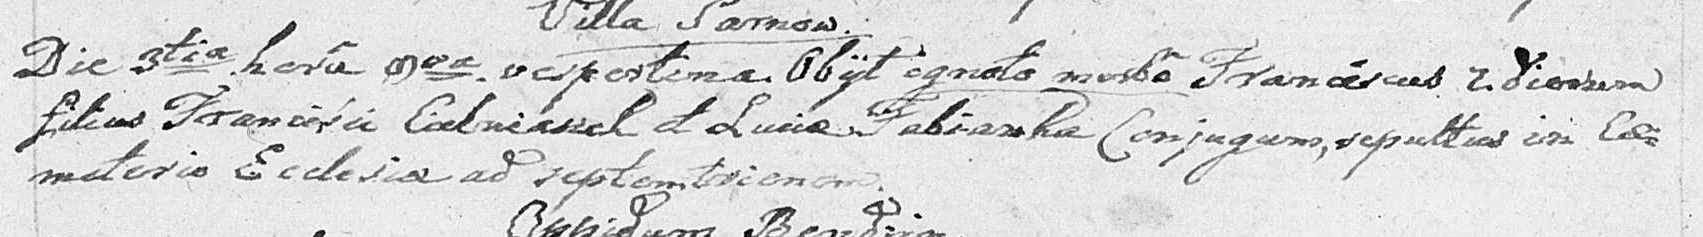 Villa Parnow.
Die 3tia horâ 9na vespertina Obijt ignoto morbo Franciscus 2. dierum
filius Francisci et Lucia Fabianska Conjugum, sepultus in Cæ=
meterio Ecclesiæ ad septemtrionem.
Oppidum Bendzin